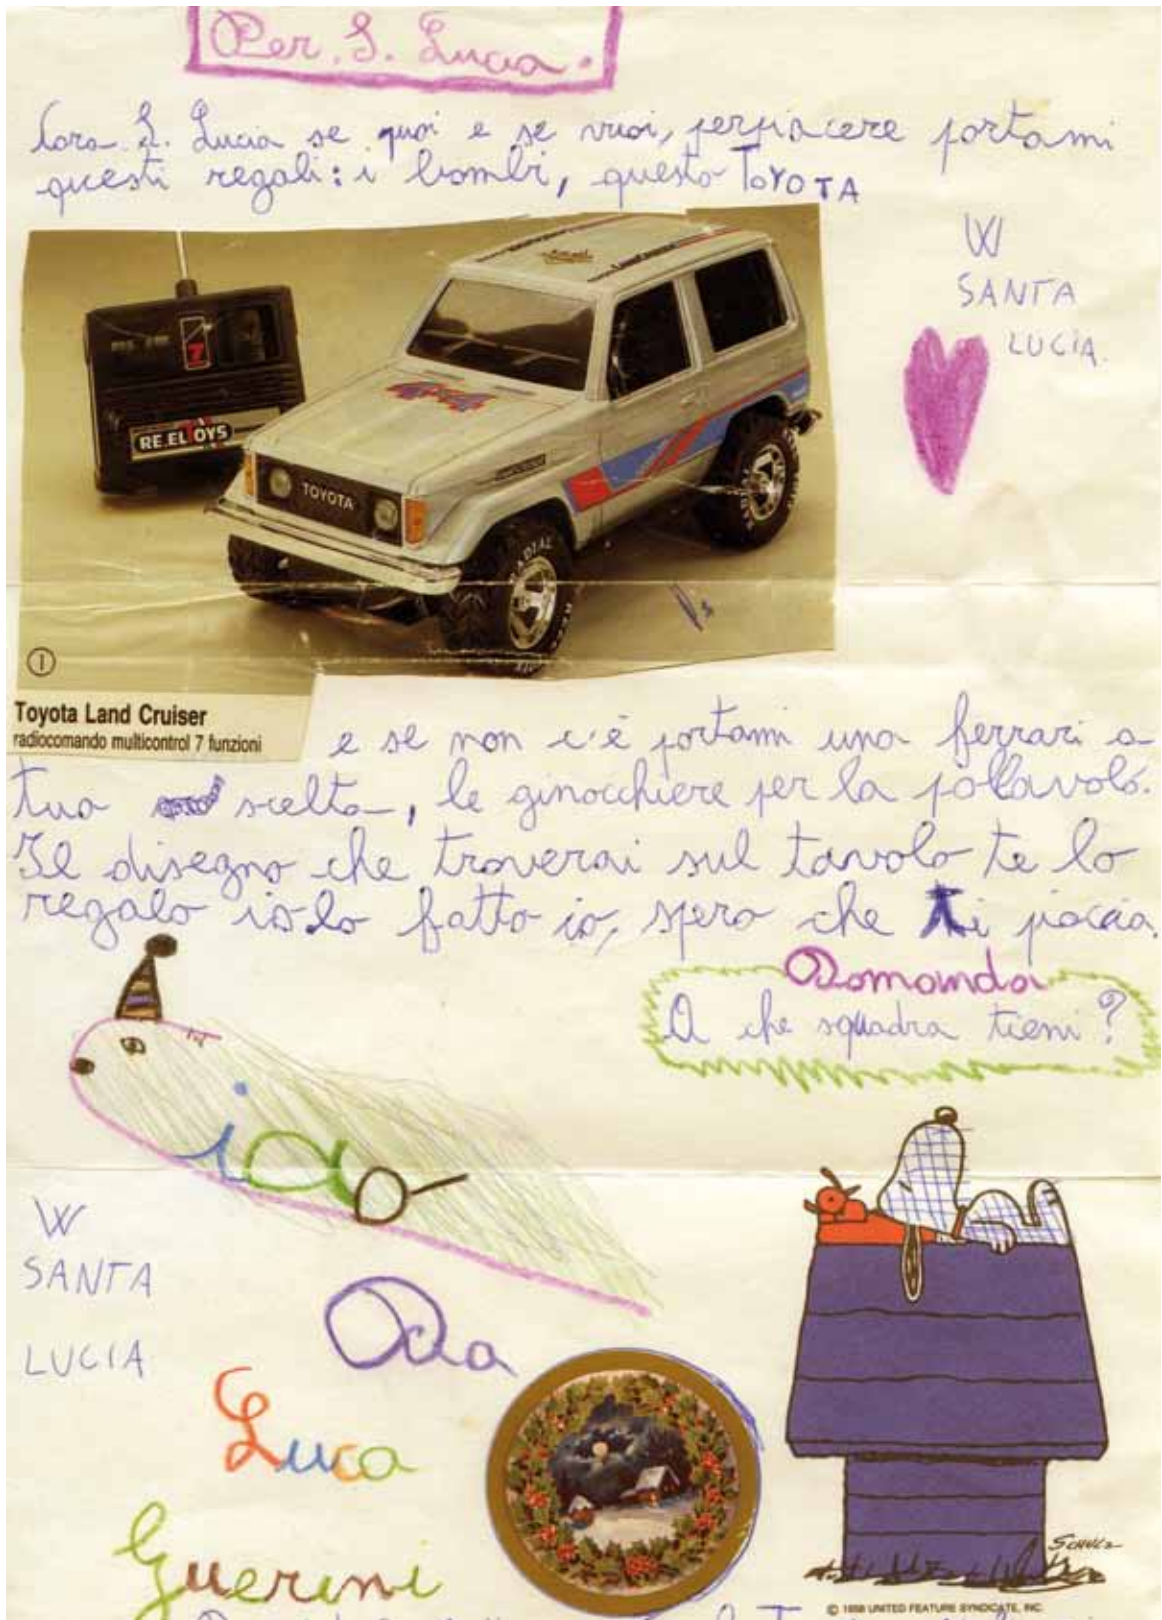 Per. S. Lucia.
Cara S. Lucia se puoi e se vuoi, perpiacere portami
questi regali: i bombi, questo TOYOTA
W
SANTA
LUCIA.
7
RE.EL TOYS
4x4
TOYOTA
RADIAL
①
Toyota Land Cruiser
radiocomando multicontrol 7 funzioni
e se non c'è portami una ferrari a
tua scelta, le ginocchiere per la pallavolo.
Il disegno che troverai sul tavolo te lo
regalo io lo fatto io, spero che ti piaccia.
Domanda
A che squadra tieni?
iao
W
SANTA
LUCIA
Da
Luca
Guerini
SCHULZ
© 1958 UNITED FEATURE SYNDICATE, INC.